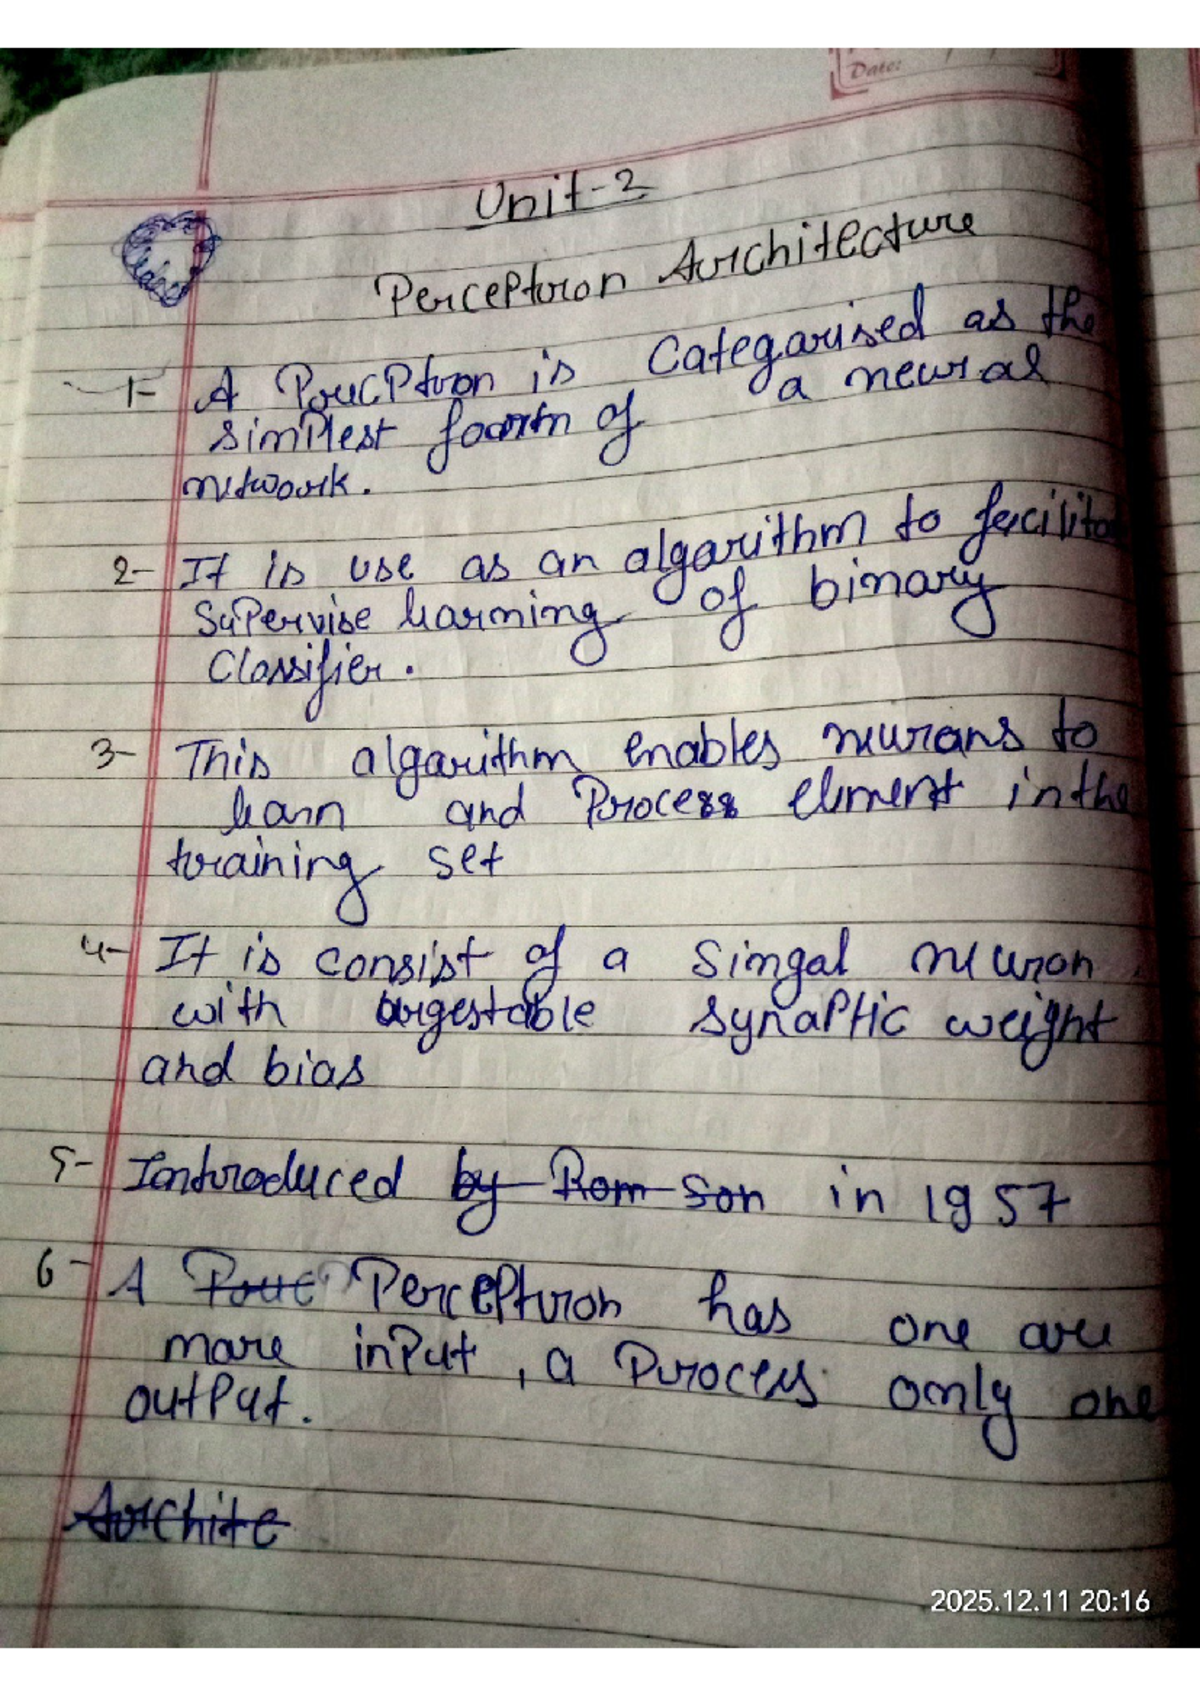 Date:
Unit-2
Perceptron Architecture
1- A Perceptron is Categarised as the
simplest foarm of a neural
network.
2- It is use as an algarithm to facilita
Supervise learning of binary
Classifier.
3- This algarithm enables neurans to
learn and Process element in the
training set
4- It is consist of a Singal neuron
with argestable synaptic weight
and bias
5- Introduced by Rom Son in 1957
6- A Perceptron has one are
mare input, a Process only one
output.
Archite
2025.12.11 20:16